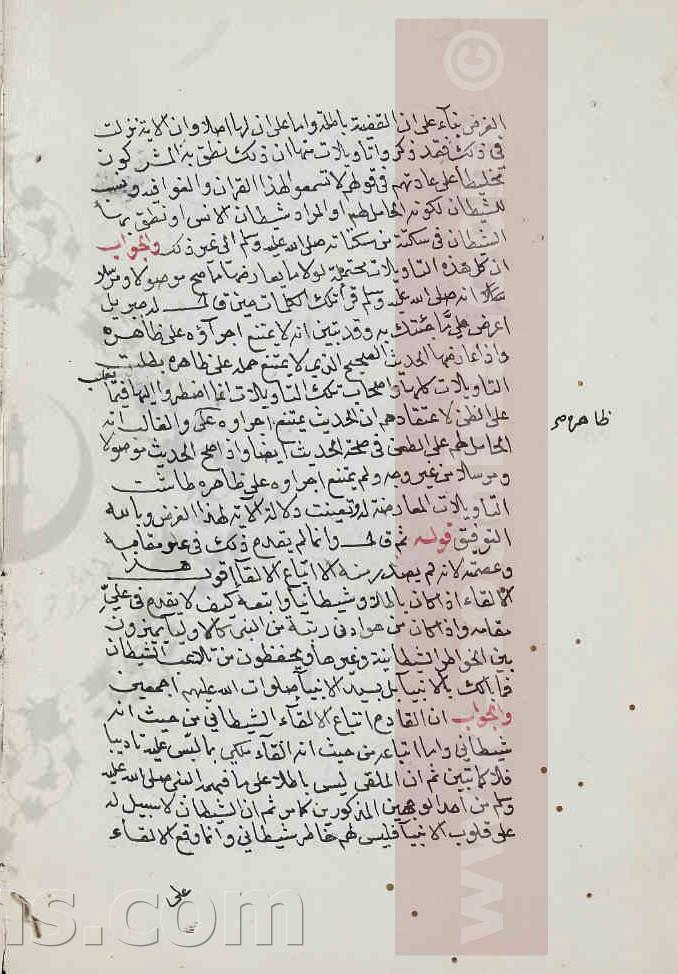 الغرض بناء على ان القصة باطلة واما على ان لها اصلا وان الاية نزلت
في ذلك فقد ذكروا تاويلات منها ان ذلك نطق به المشركون
تخليطا على عادتهم في قولهم لا تسمعوا لهذا القران والغوا فيه ونسب
للشيطان لكونه الحامل لهم او المراد شيطان الانس او نطق بها
الشيطان في سكتة من سكتاته صلى الله عليه وسلم الى غير ذلك والجواب
ان كل هذه التاويلات محتملة لولا ما يعارضها ما صح موصولا ومرسلا
انه صلى الله عليه وسلم قرأ تلك الكلمات حين قال له جبريل
اعرض علي ما جئتك به وقد تبين انه لا يمتنع اجراؤه على ظاهره
واذا عارضها الحديث الصحيح الذي لا يمتنع حمله على ظاهره بطلت
التاويلات كلها واصحاب تلك التاويلات انما اضطروا اليها فيما
يغلب
على الظن لاعتقادهم ان الحديث يمتنع اجراوه على والغالب انه
ظاهره صح
الحامل لهم على الطعن في صحة الحديث ايضا واذا صح الحديث موصولا
ومرسلا من غير وجه ولم يمتنع اجراوه على ظاهره طاشت
التاويلات المعارضة له وتعينت دلالة الاية لهذا الغرض وبالله
التوفيق قوله ثم قال وانما لم يقدح ذلك في علو مقامه
وعصمته لانه لم يصدر منه الا اتباع الالقا اقول هذا
الالقاء اذا كان باطلا وشيطانيا واتبعه كيف لا يقدح في علو
مقامه واذا كان من هو ادنى رتبة من النبي كالاوليا يميزون
بين الخواطر الشيطانية وغيرها ويحفظون من تلاعب الشيطان
فما بالك بالانبيا بل بسيد الانبيا صلوات الله عليهم اجمعين
والجواب ان القادح اتباع الالقاء الشيطاني من حيث انه
شيطاني واما اتباعه من حيث انه القاء ملكي بالبس عليه تاديبا
فلا كما تبين ثم ان الملقى ليس باطلا على ما فهمه النبي صلى الله عليه
وسلم من احد الوجهين المذكورين كما مر ثم ان الشيطان لا سبيل له
على قلوب الانبيا فليس لهم خاطر شيطاني وانما وقع الالقاء
على
©
www
ns.com